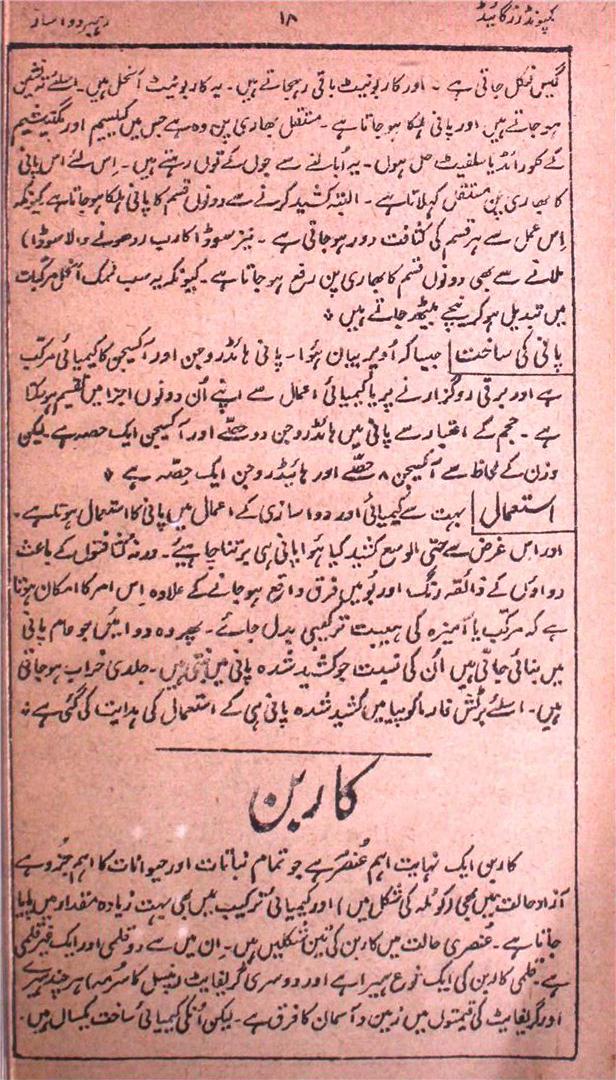 کمپونڈرز گائیڈ ۱۸ رہبر دوا ساز
گیس نکل جاتی ہے ۔ اور کاربونیٹ باقی رہجاتے ہیں ۔ یہ کاربونیٹ آنحل ہیں ۔ اسلئے تہ نشین
ہو جاتے ہیں اور پانی ہلکا ہو جاتا ہے ۔ مستقل بھاری پن وہ ہے جس میں کیلسیم اور مگنیشیم
کے کلورائڈ یا سلفیٹ حل ہوں ۔ یہ اُبالنے سے جوں کے توں رہتے ہیں ۔ اِس لئے اس پانی
کا بھاری پن مستقل کہلاتا ہے ۔ البتہ کشید کرنے سے دونوں قسم کا پانی ہلکا ہو جاتا ہے کیونکہ
اِس عمل سے ہر قسم کی کثافت دور ہو جاتی ہے ۔ نیز سوڈا کارب (دھونے والا سوڈا)
ملانے سے بھی دونوں قسم کا بھاری پن رفع ہو جاتا ہے ۔ کیونکہ یہ سب نمک آنحل مرکبات
میں تبدیل ہو کر نیچے بیٹھ جاتے ہیں ۔
پانی کی ساخت جیسا کہ اُوپر بیان ہُوا ۔ پانی ہائڈروجن اور آکسیجن کا کیمیائی مرکب
ہے اور برقی رو گزارنے پر یا کیمیائی اعمال سے اپنے اُن دونوں اجزا میں تقسیم ہو سکتا
ہے ۔ حجم کے اعتبار سے پانی میں ہائڈروجن دو حصّے اور آکسیجن ایک حصہ ہے ۔ لیکن
وزن کے لحاظ سے آکسیجن ۸ حصّے اور ہائیڈروجن ایک حِصّہ ہے ۔
استعمال بہت سے کیمیائی اور دوا سازی کے اعمال میں پانی کا استعمال ہوتا ہے ۔
اور اس غرض سے حتی الوسع کشید کیا ہُوا پانی ہی برتنا چاہیئے ۔ ورنہ کثافتوں کے باعث
دواؤں کے ذائقہ رنگ اور بُو میں فرق واقع ہو جانے کے علاوہ اِس امر کا امکان ہوتا
ہے کہ مرکب یا آمیزہ کی ہیبت ترکیبی بدل جائے ۔ پھر وہ دوائیں جو عام پانی
میں بنائی جاتی ہیں اُن کی نسبت جو کشید شُدہ پانی میں بنتی ہیں ۔ جلدی خراب ہو جاتی
ہیں ۔ اسلئے برٹش فارماکوپیا میں کشید شدہ پانی ہی کے استعمال کی ہدایت کی گئی ہے ۔
کاربن
کاربن ایک نہایت اہم عُنصر ہے جو تمام نباتات اور حیوانات کا اہم جُزو ہے
آزاد حالت میں بھی (کوئلہ کی شکل میں) اور کیمیائی ترکیب میں بھی بہت زیادہ مقدار میں پایا
جاتا ہے ۔ عُنصری حالت میں کاربن کی تین شکلیں ہیں ۔ اِن میں سے دو قلمی اور ایک غیر قلمی
ہے ۔ قلمی کاربن کی ایک نوع ہیرا ہے اور دوسری گریفایٹ (پنسل کا سُرمہ) ہر چند ہیرے
اور گریفایٹ کی قیمتوں میں زمین و آسمان کا فرق ہے ۔ لیکن اُنکی کیمیائی ساخت یکساں ہیں ۔